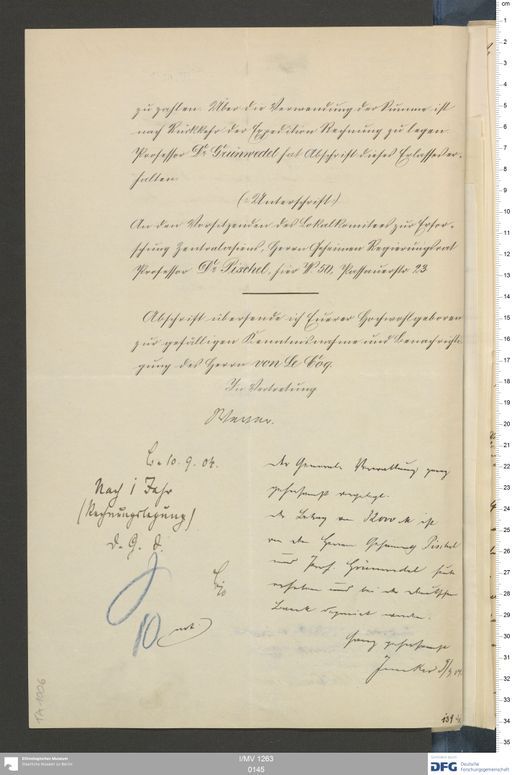 zu zahlen. Über die Verwendung der Summe ist
nach Rückkehr der Expedition Rechnung zu legen.
Professor Dr. Grünwedel hat Abschrift dieses Erlasses er-
halten.
(Unterschrift.)
An den Vorsitzenden des Lokalkomitees zur Erfor-
schung Zentralasiens, Herrn Geheimen Regierungsrat
Professor Dr. Pischel, hier W 50, Passauerstr 23.
Abschrift übersende ich Euerer Hochwohlgeboren
zur gefälligen Kenntnisnahme und Benachrichti-
gung des Herrn von Le Coq.
In Vertretung
Wever.
B. 10. 9. 04.
Nach 1 Jahr
(Rechnungslegung)
d. G. V.
10
not
Der General Verwaltung ganz
gehorsamst vorgelegt.
Der Betrag von 32000 M ist
von den Herren Geheimrat Pischel
und Prof. Grünwedel heute
erhoben und bei der Deutschen
Bank deponiert worden.
Ganz gehorsamst
9/9 04.
139
1A 1906
Ethnologisches Museum
Staatliche Museen zu Berlin
I/MV 1263
0145
DFG Deutsche
Forschungsgemeinschaft
cm
1
2
3
4
5
6
7
8
9
10
11
12
13
14
15
16
17
18
19
20
21
22
23
24
25
26
27
28
29
30
31
32
33
34
35